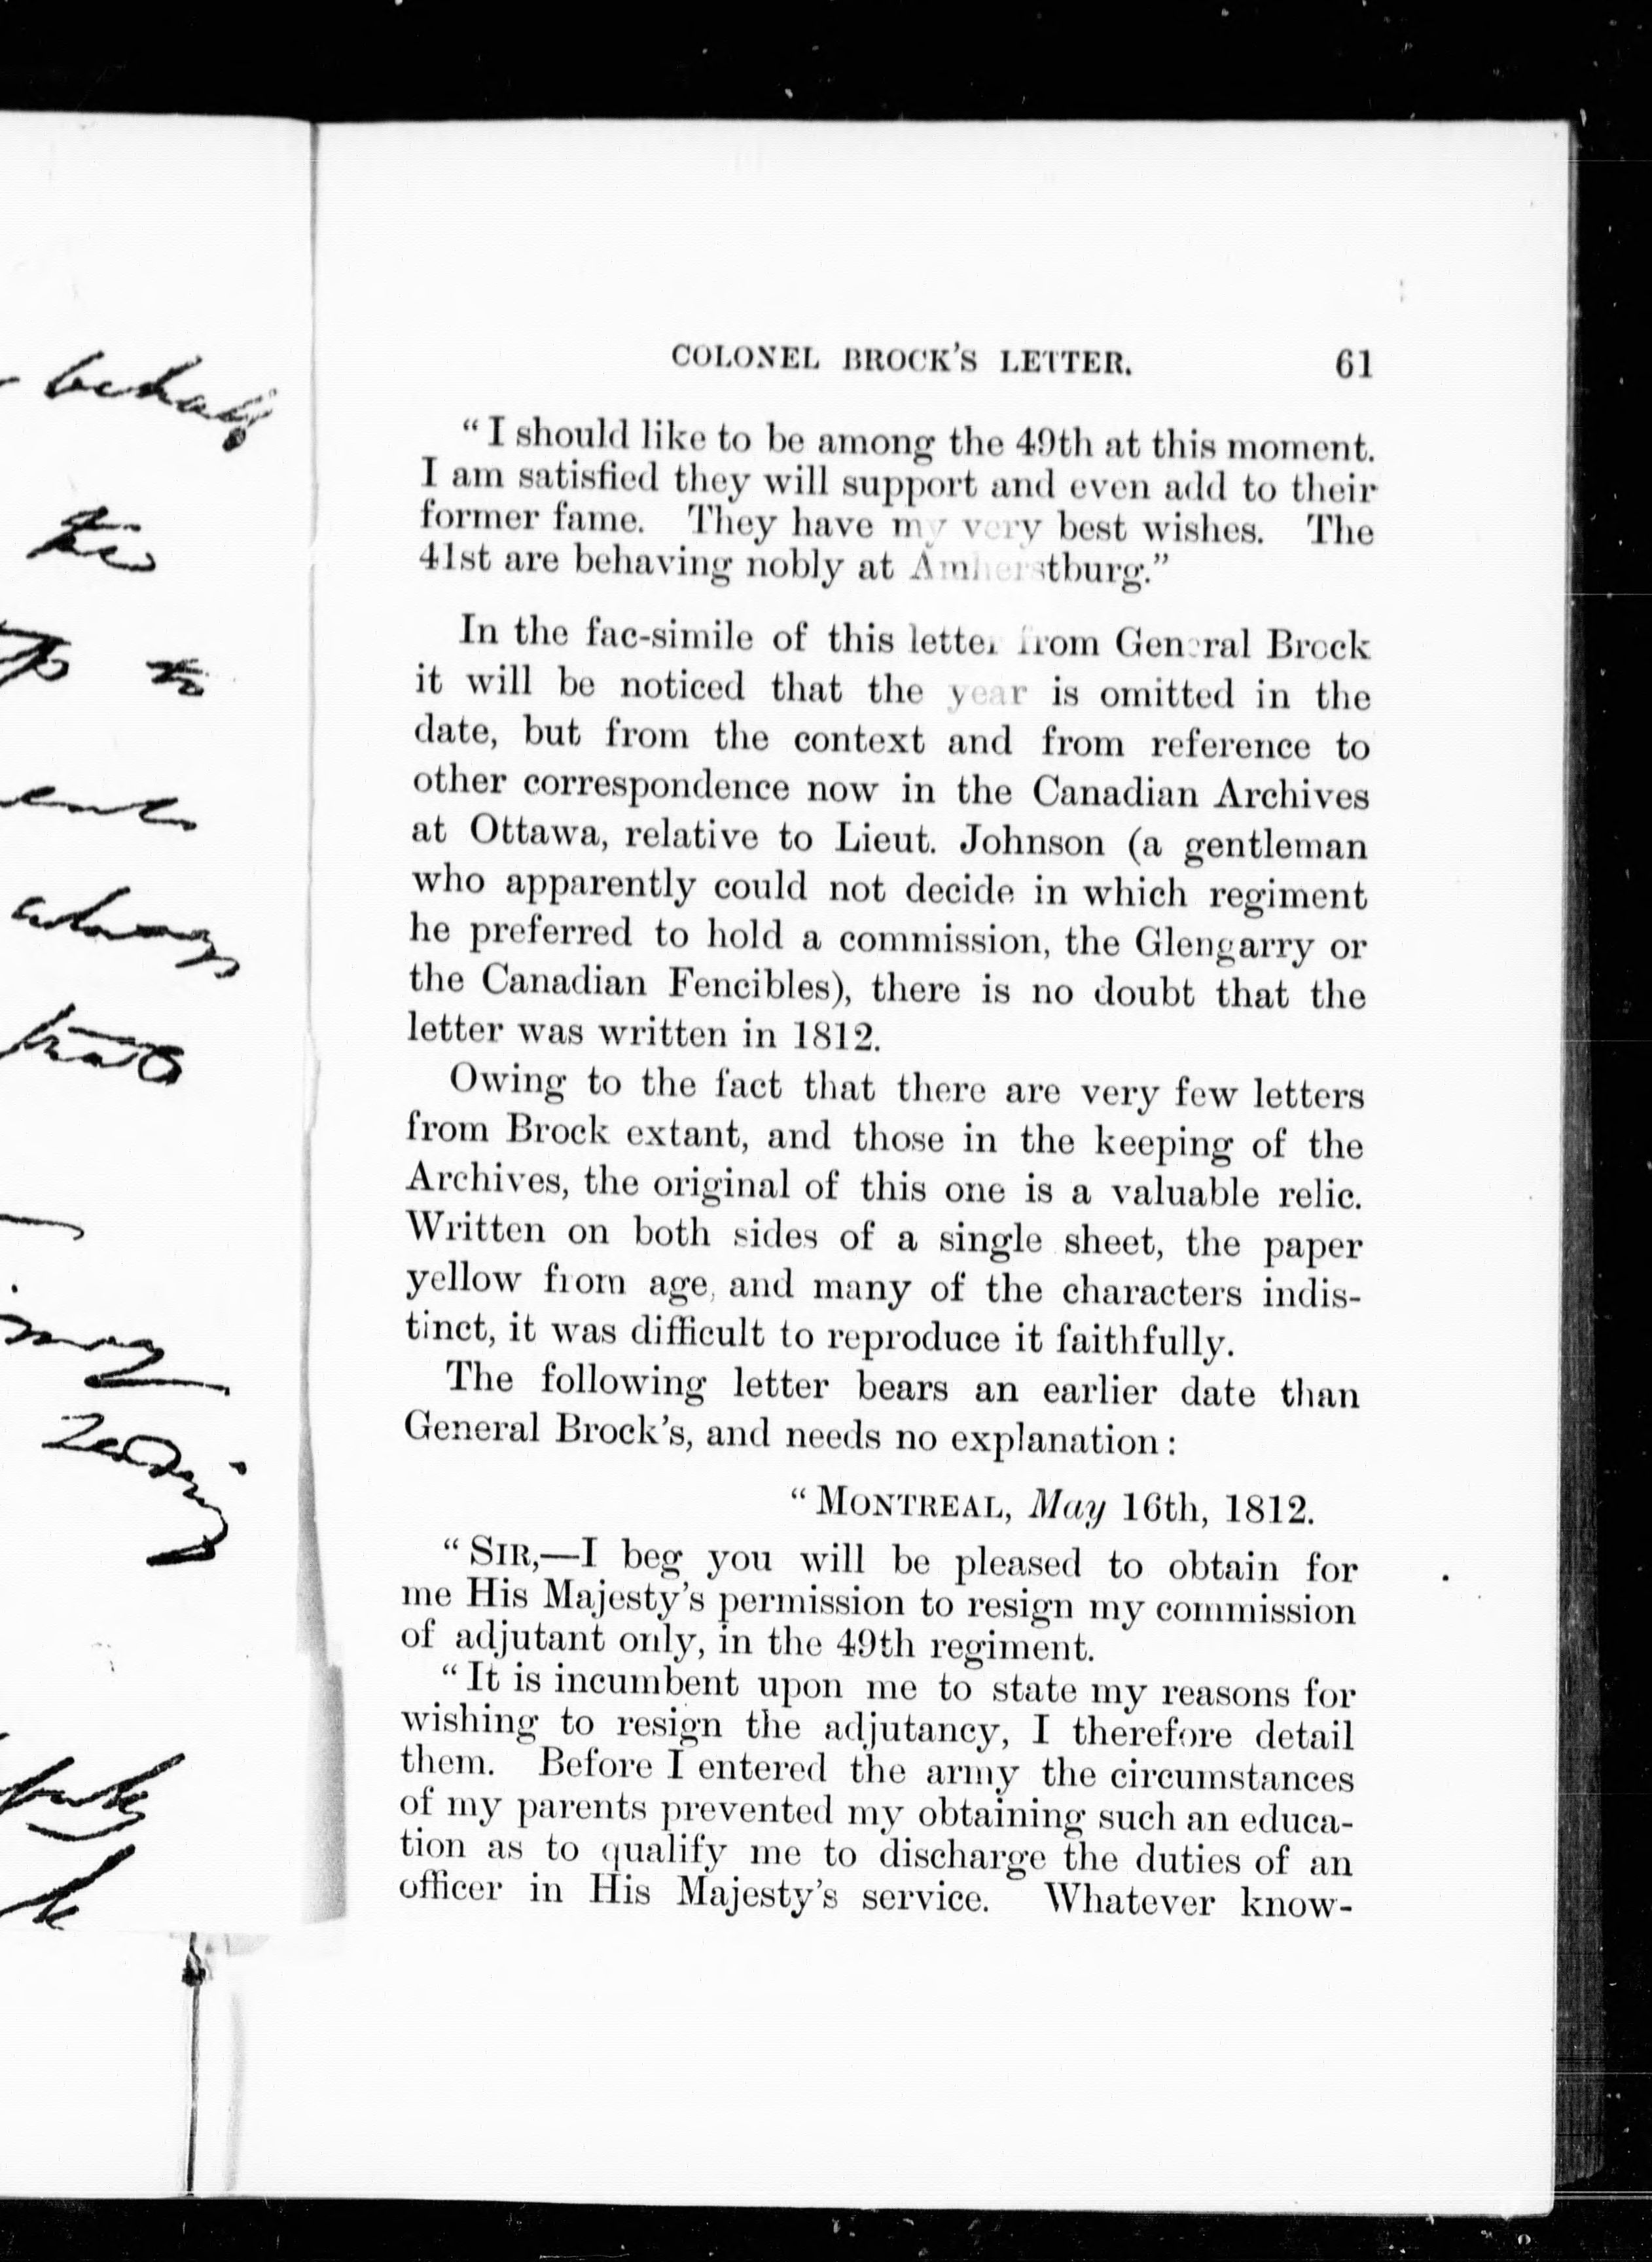 behalf
the
to
always
that
COLONEL BROCK'S LETTER. 61
“I should like to be among the 49th at this moment.
I am satisfied they will support and even add to their
former fame. They have my very best wishes. The
41st are behaving nobly at Amherstburg.”
In the fac-simile of this letter from General Brock
it will be noticed that the year is omitted in the
date, but from the context and from reference to
other correspondence now in the Canadian Archives
at Ottawa, relative to Lieut. Johnson (a gentleman
who apparently could not decide in which regiment
he preferred to hold a commission, the Glengarry or
the Canadian Fencibles), there is no doubt that the
letter was written in 1812.
Owing to the fact that there are very few letters
from Brock extant, and those in the keeping of the
Archives, the original of this one is a valuable relic.
Written on both sides of a single sheet, the paper
yellow from age, and many of the characters indis-
tinct, it was difficult to reproduce it faithfully.
The following letter bears an earlier date than
General Brock's, and needs no explanation:
“MONTREAL, May 16th, 1812.
“SIR,—I beg you will be pleased to obtain for
me His Majesty's permission to resign my commission
of adjutant only, in the 49th regiment.
“It is incumbent upon me to state my reasons for
wishing to resign the adjutancy, I therefore detail
them. Before I entered the army the circumstances
of my parents prevented my obtaining such an educa-
tion as to qualify me to discharge the duties of an
officer in His Majesty's service. Whatever know-